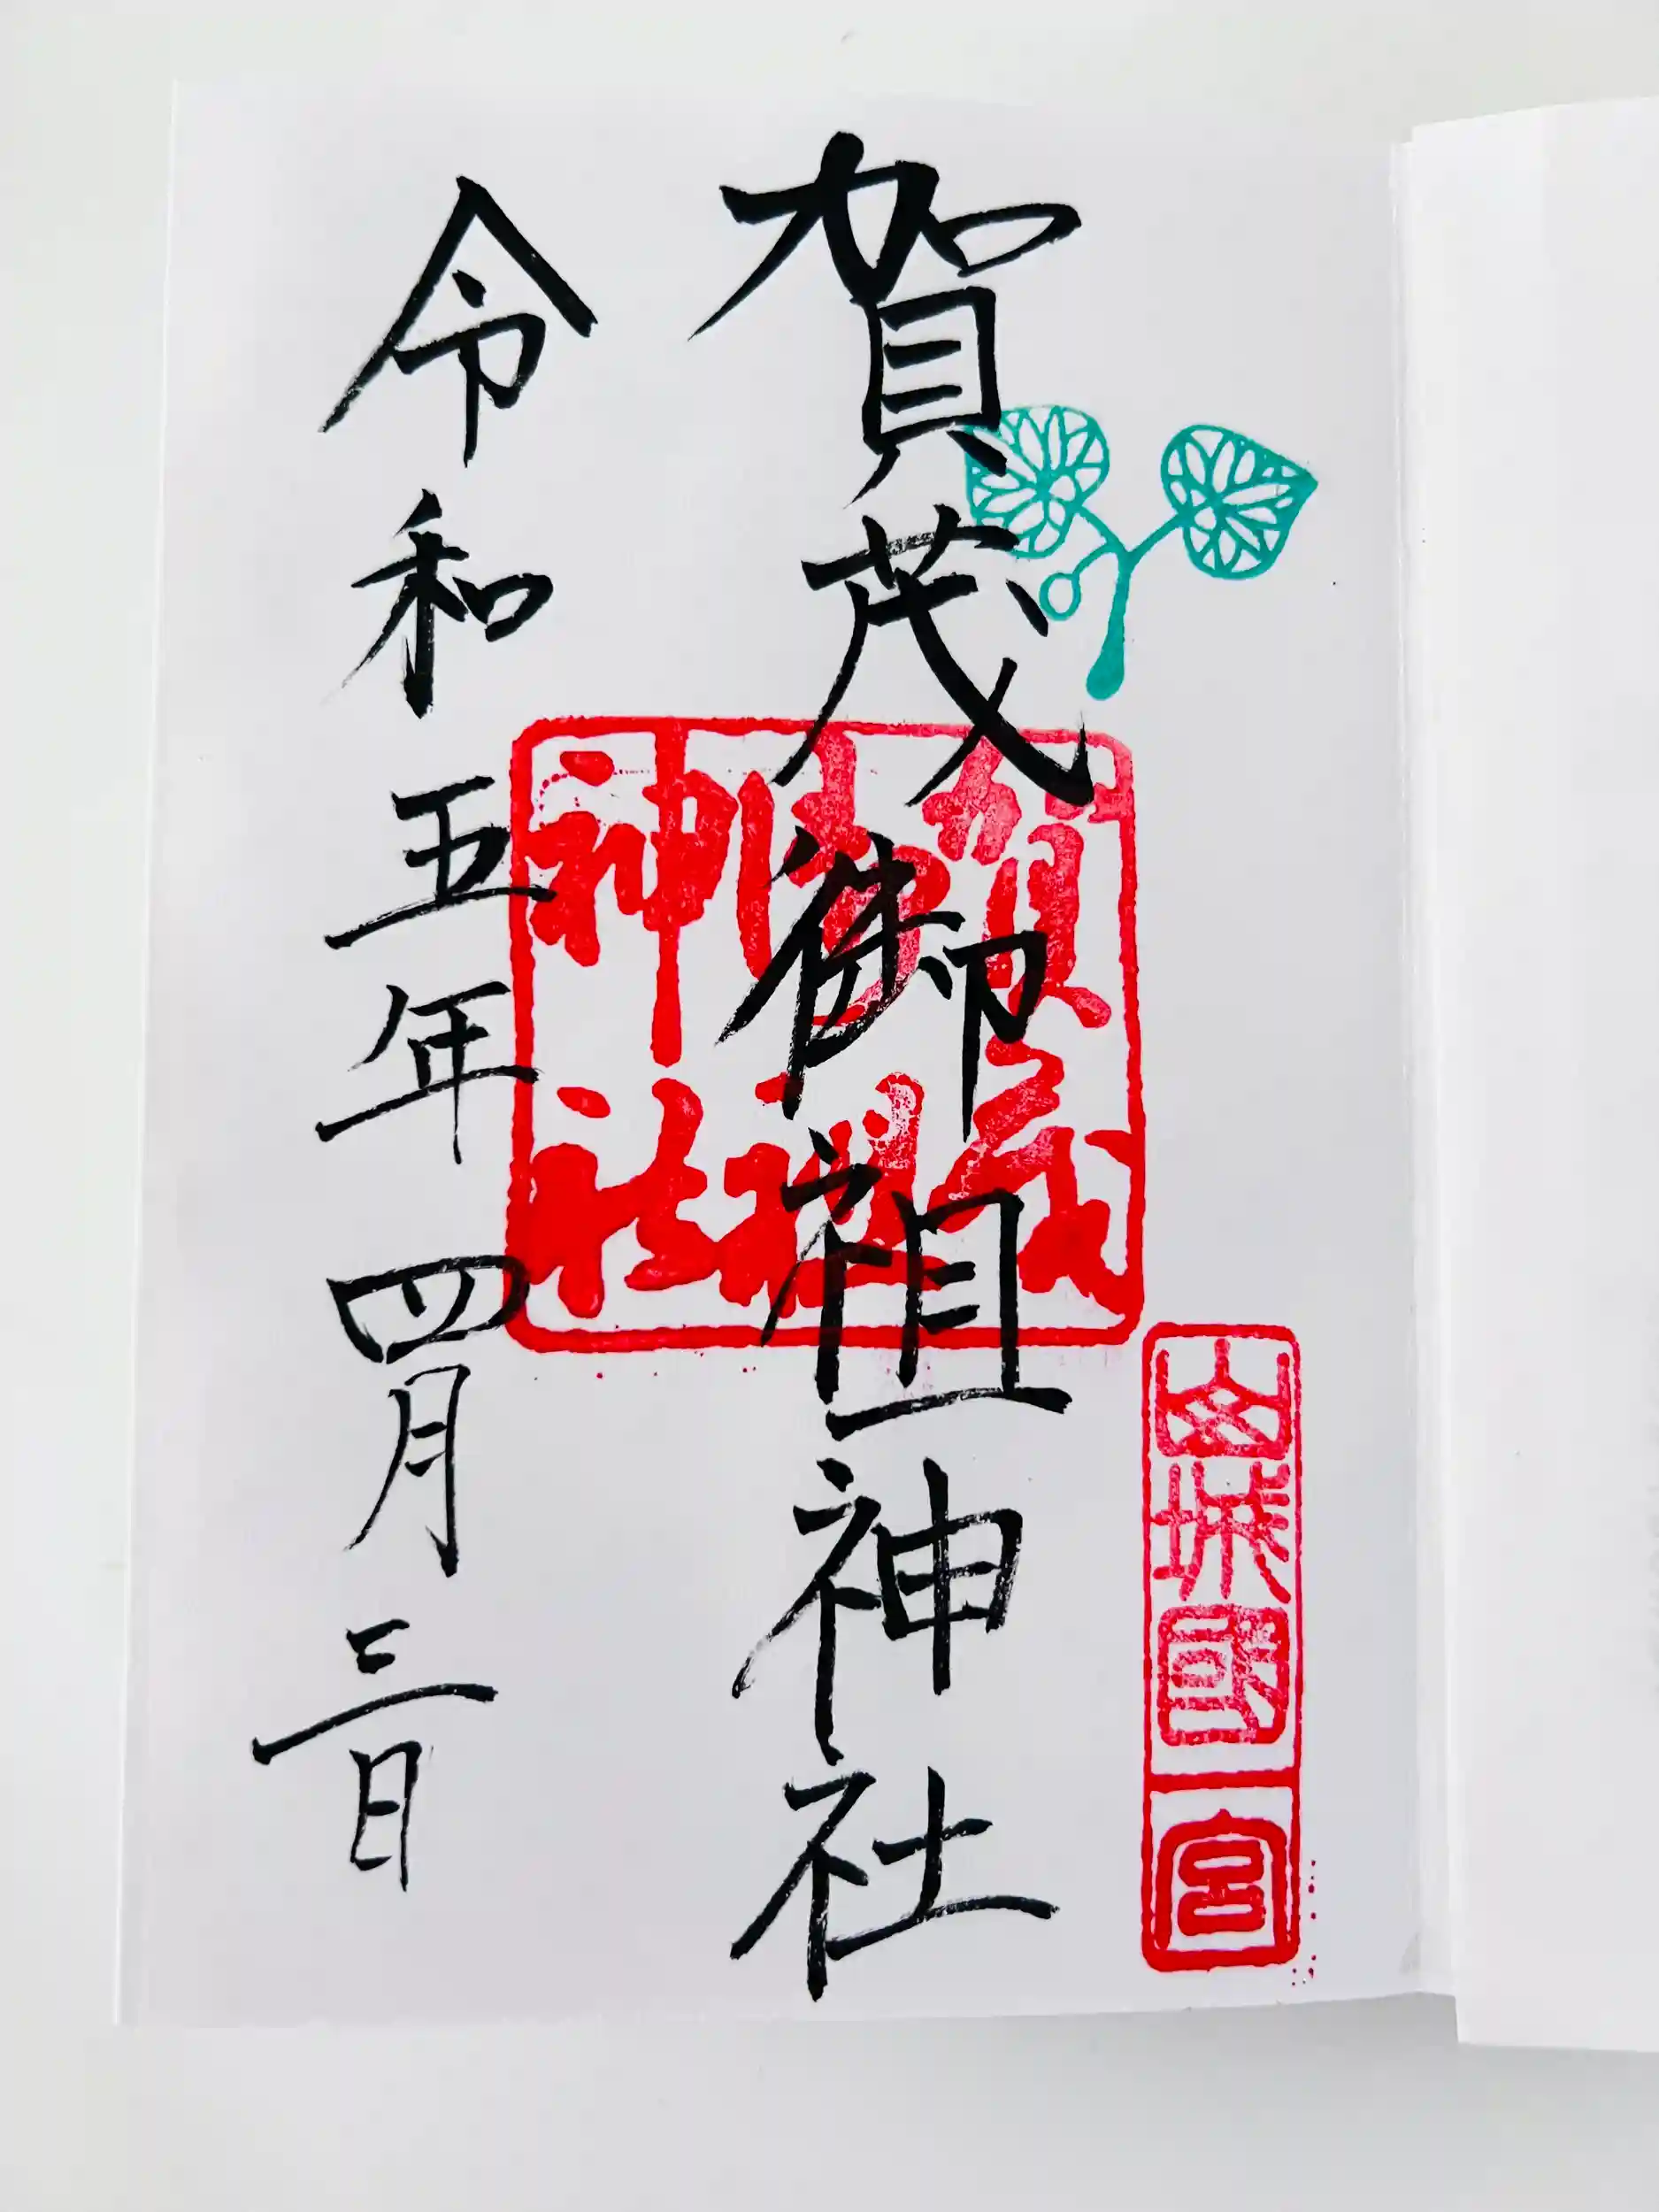 山城國一宮
賀茂御祖神社
賀茂
御祖
神社
令和五年四月三日